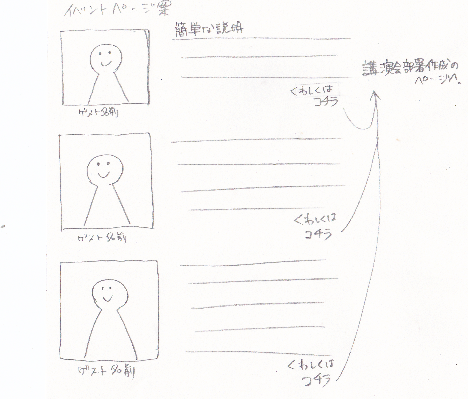 イベントページ案
簡単な説明
ゲスト名前
くわしくは
コチラ
講演会部署作成の
ページへ
ゲスト名前
くわしくは
コチラ
ゲスト名前
くわしくは
コチラ